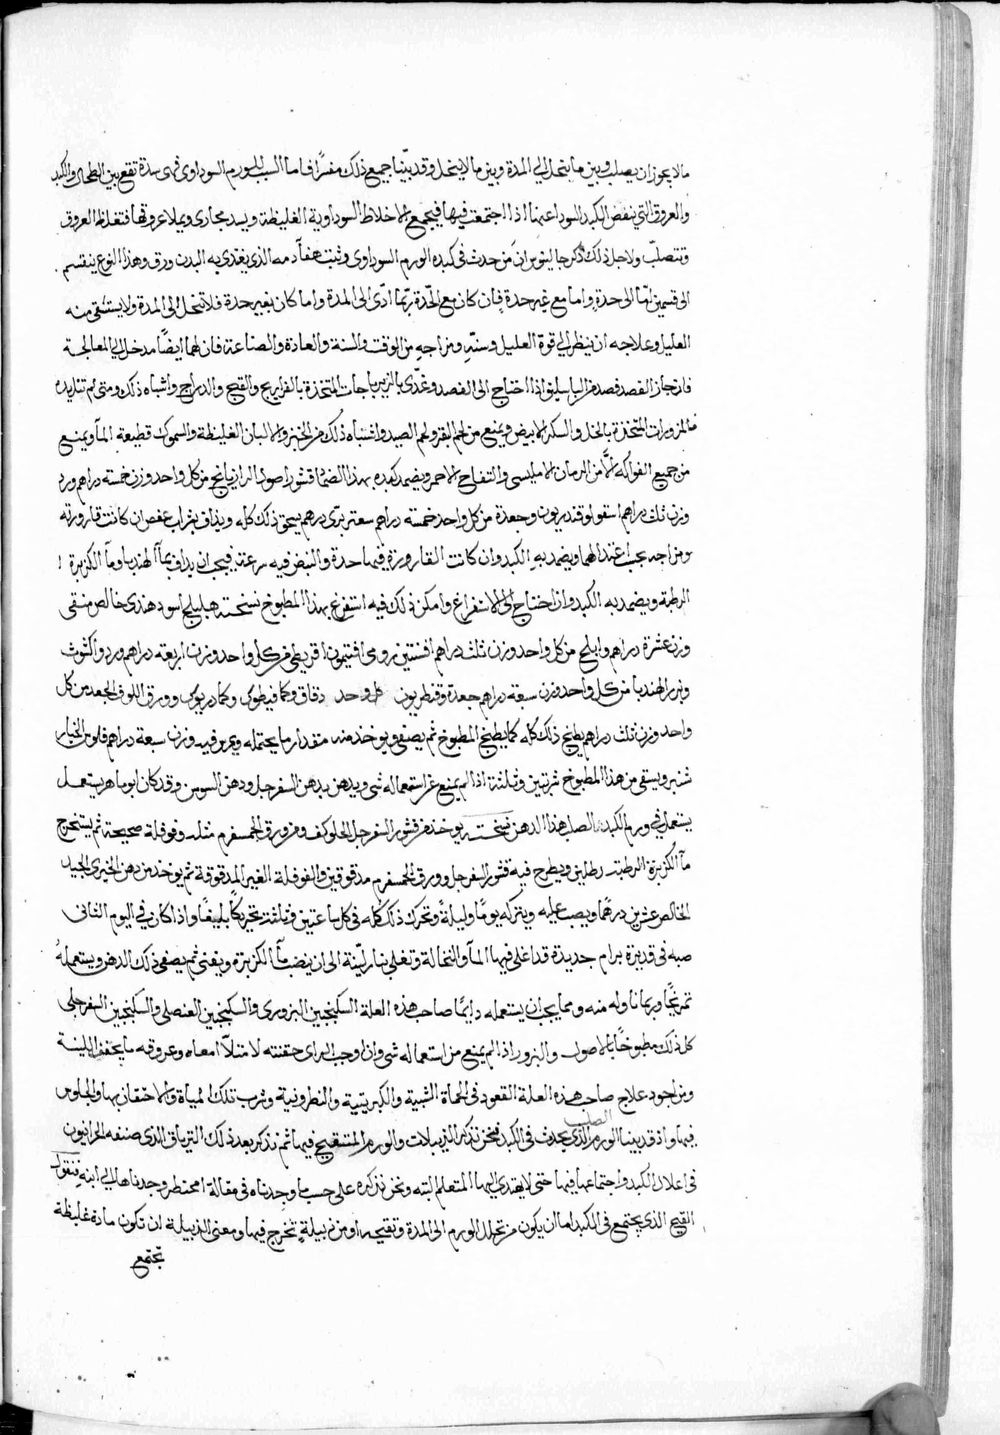 ما لا يجوز ان يصلب وبين ما يتحلل الى المدة وبين ما لا يتحلل وقد بيّنا جميع ذلك مفسّرا فاما السبب للورم السوداوى فهى سدة تقع بين الطحال والكبد
والعروق التى تنفض الكبد السوداء عنها اذا اجتمعت فيها فيجمع الاخلاط السوداوية الغليظة ويسد مجارى ويملا عروقها فتغلظ العروق
وتتصلّب ولاجل ذلك ذكر جالينوس انّ من حدث فى كبده الورم السوداوى وثبت هفا دمه الذى يغذى به البدن ورق وهذا النوع ينقسم
الى قسمين امّا الى حدة واما مع غير حدة فان كان مع الحدّة ربّما ادّى الى المدة واما كان بغير حدة فلا تتحلل الى المدة ولا يستشقى منه
العليل وعلاجه ان ينظر الى قوة العليل وسنّه ومزاجه من الوقت والسنة والعادة والصناعة فان لهما ايضًا مدخل الى المعالجة
فان جاز الفصد فصد من الباسليق اذا احتاج الى الفصد وغذّى بالزيرباجات المتخذة بالفراريج والقبج والدراج واشباه ذلك ومتى لم
فالمزورات المتخذة بالخل والسكر الابيض ويمنع من لحم البقر ولحم الصيد واشباه ذلك من الخبز والالبان الغليظة والسموك قطيعة الماء ويمنع
من جميع الفواكه الّا من الرمان الامليسى والتفاح الاحمر ويضمد كبده بهذا الضماد قشور اصول الرازيانج من كل واحد وزن خمسة دراهم ورد
وزن ثلث دراهم اسقولوقندريون وجعدة من كل واحد خمسة دراهم سعتر برّى درهم يسحق ذلك كله ويذاف بشراب عفص ان كانت قارورته
ومزاجه يجب اعتدالهما ويضمد به الكبد وان كانت القارورة فيها حدة والنبض فيه سرعة فيجب ان يداف بماء الهندبا وماء الكزبرة
الرطبة ويضمد به الكبد وان احتاج الى الاستفراغ وامكن ذلك فيه استفرغ بهذا المطبوخ نسخته هليلج اسود هندى خالص منقى
وزن عشرة دراهم واملج من كل واحد وزن ثلث دراهم افسنتين رومى افتيمون اقريطى من كل واحد وزن اربعة دراهم ورد واكثوث
وبزر الهندبا من كل واحد وزن سبعة دراهم جعدة وقنطريون كل واحد دقاق وكمافيطوس وكمادريوس وورق اللوف الجعد من كل
واحد وزن ثلث دراهم يطبخ ذلك كله كما يطبخ المطبوخ ثم يصفى ويوخذ منه مقدار ما يحتمله ويمرس فيه وزن سبعة دراهم فلوس الخيار
شنبر ويسقى من هذا المطبوخ شربتين وثلثة اذا لم يمنع عن استعماله شى ويدهن بدهن السفرجل ودهن السوسن وقد كان ابو ماهر يستعمل
يستعمل فى ورم الكبد الصلب هذا الدهن نسخته يوخذ من قشور السفرجل الحلو كف ومن ورق الجمسفرم مثله وفوفلة صحيحة ثم يستخرج
ماء الكزبرة الرطبة رطلين ويطرح فيه قشور السفرجل وورق الجمسفرم مدقوقين والفوفلة الغير المدقوقة ثم يوخذ من دهن الخيرى الجيد
الخالص عشرين درهما ويصب عليه ويتركه يومًا وليلةً وتحرك ذلك كله فى كل ساعتين وثلثة تحريكًا بليغًا واذا كان فى اليوم الثانى
صبه فى قديرة برام جديدة قد اغلى فيها الماء والنخالة وتغلى بنار ليّنة الى ان ينضب ماء الكزبرة ويفنى ثم يصفى ذلك الدهن ويستعمله
تمريخًا وربما ناوله منه ومما يجب ان يستعمله دايمًا صاحب هذه العلة السكنجبين البزورى والسكنجبين العنصلى والسكنجبين السفرجلى
كل ذلك مطبوخًا بالاصول والبزور اذا لم يمنع من استعماله شى وان اوجب الراى حقنته لامتلاء امعاه وعروقه ما يخفف اللينة
ومن اجود علاج صاحب هذه العلة القعود فى الحماة الشبية والكبريتية والنطرونية وشرب تلك المياة والاحتقان بها والجلوس
فيها واذ قد بينا الورم الصلب الذى يحدث فى الكبد فنحن نذكر الدبيلات والورم المتقيح فيها ثم نذكر بعد ذلك الترياق الذى صنفه الحرانيون
فى اعلال الكبد واجتماعها فيها حتى لا يهتدى اليها المتعلم البتة ونحن نذكره على حسب ما وجدناه فى مقالة وجدناها الى ابنه فنقول
القيح الذى يجتمع فى الكبد اما ان يكون من تحلل الورم الى المدة وتقيحه او من دبيلةٍ تخرج فيها ومعنى الدبيلة ان تكون مادة غليظة
تجتمع